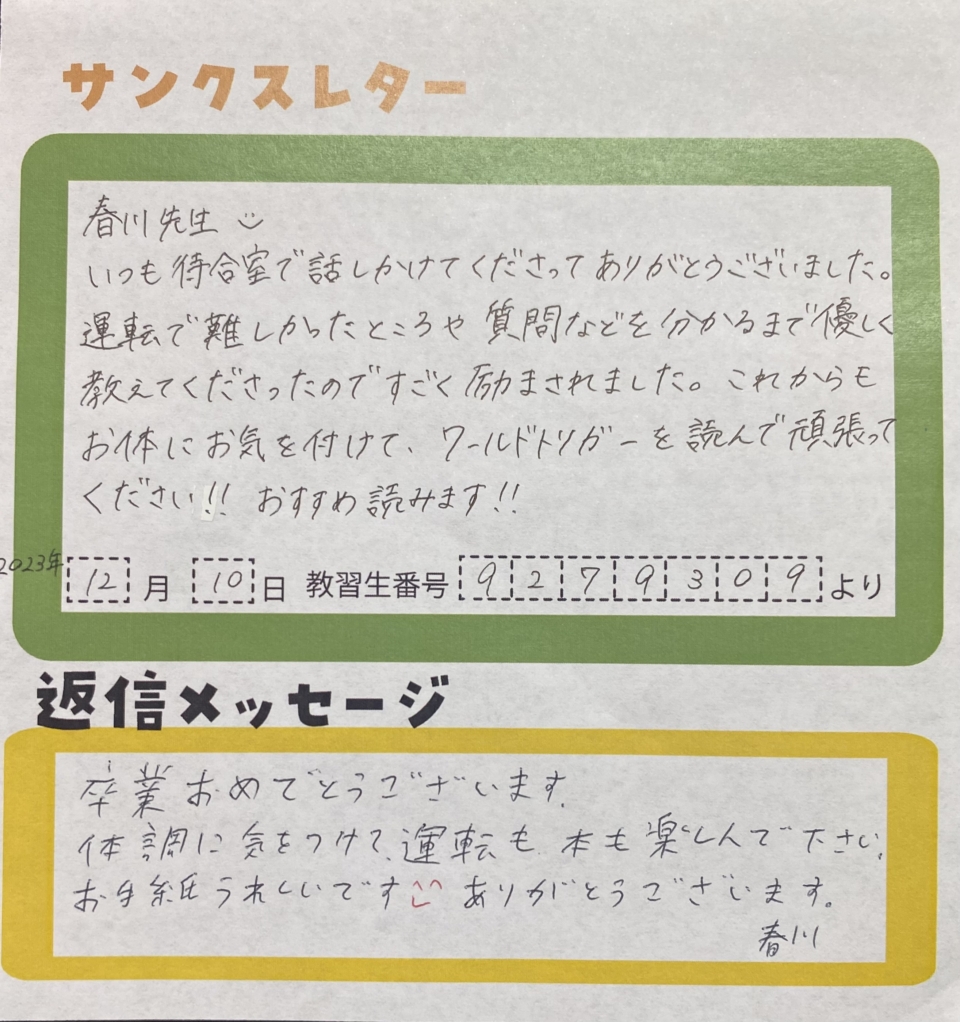 サンクスレター
春川先生
いつも待合室で話しかけてくださってありがとうございました。
運転で難しかったところや質問などを分かるまで優しく
教えてくださったのですごく励まされました。これからも
お体にお気を付けて、ワールドトリガーを読んで頑張って
ください!! おすすめ読みます!!
2023年 12月 10日 教習生番号 9279309 より
返信メッセージ
卒業おめでとうございます。
体調に気をつけて、運転も本も楽しんで下さい。
お手紙うれしいです ありがとうございます。
春川